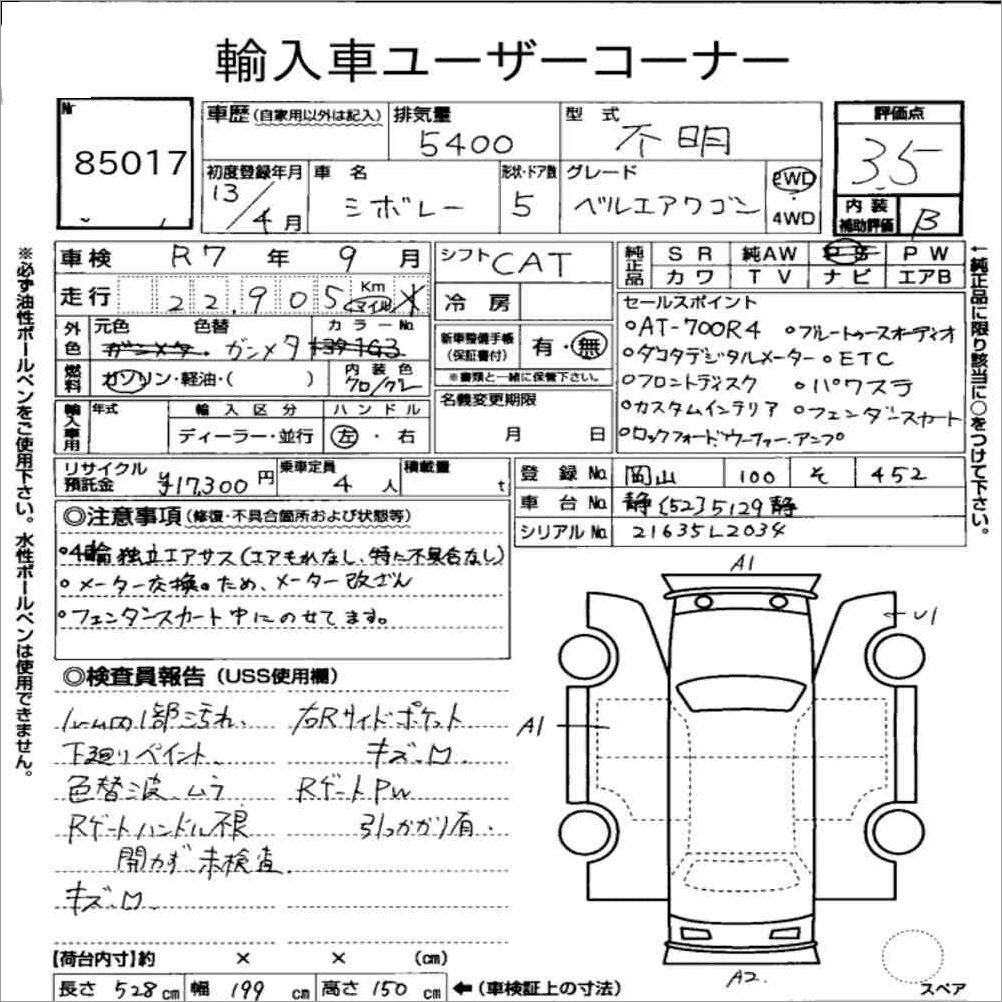 輸入車ユーザーコーナー
№
85017
車歴(自家用以外は記入)
排気量
5400
型式
不明
評価点
3.5
初度登録年月
13/4月
車名
シボレー
形状・ドア数
5
グレード
ベルエアワゴン
2WD
4WD
内装補助評価
B
車検 R7年9月
シフト CAT
純正品 SR 純AW PS PW
カワ TV ナビ エアB
走行 22,905 Km マイル
冷房
外色 元色 色替 カラーNo.
ガンメタ ガンメタ 163
新車整備手帳(保証書付) 有・無
※書類と一緒に保管下さい。
燃料 ガソリン・軽油・( )
内装色
クロ/グレー
輸入車用 年式 輸入区分 ハンドル
ディーラー・並行 左・右
名義変更期限
月 日
セールスポイント
○AT-700R4 ○ブルートゥースオーディオ
○ダコタデジタルメーター ○ETC
○フロントディスク ○パワステ
○カスタムインテリア ○フェンダースカート
○ロックフォードウーファー.アンプ○
リサイクル預託金 ¥17,300円
乗車定員 4人
積載量 t
登録No. 岡山 100 そ 452
車台No. 静[52]5129静
シリアルNo. 21635L2034
◎注意事項(修復・不具合箇所および状態等)
○4輪独立エアサス(エアもれなし、特に不具合なし)
○メーター交換のため、メーター改ざん
○フェンダースカート中にのせてます。
◎検査員報告(USS使用欄)
ルーム内1部汚れ、
下廻りペイント、
色替 波、ムラ
Rゲートハンドル不良
開かず未検査
キズ.凹
右Rサイドポケット
キズ.凹
RゲートPW
引っかかり有.
A1
U1
A1
A2.
スペア
【荷台内寸】約 × × (cm)
長さ 528cm 幅 199cm 高さ 150cm ←(車検証上の寸法)
※必ず油性ボールペンをご使用下さい。水性ボールペンは使用できません。
←純正品に限り該当に○をつけて下さい。